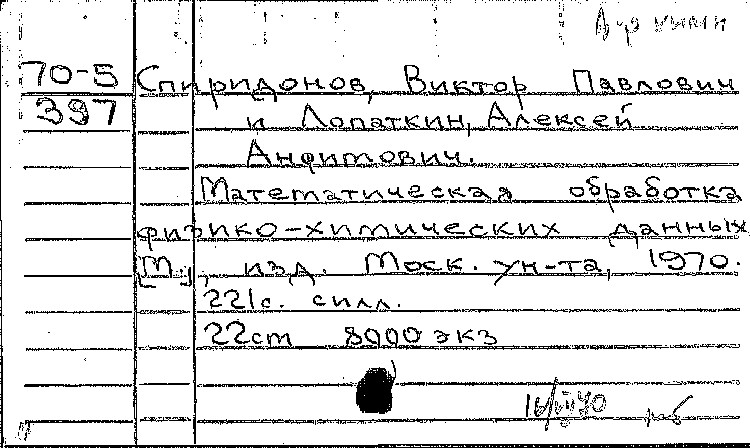 70-5 Спиридонов, Виктор Павлович
397 и Лопаткин, Алексей
Анфимович.
Математическая обработка
физико-химических данных
[М.], изд. Моск. ун-та, 1970.
221с. силл.
22см 8000 экз